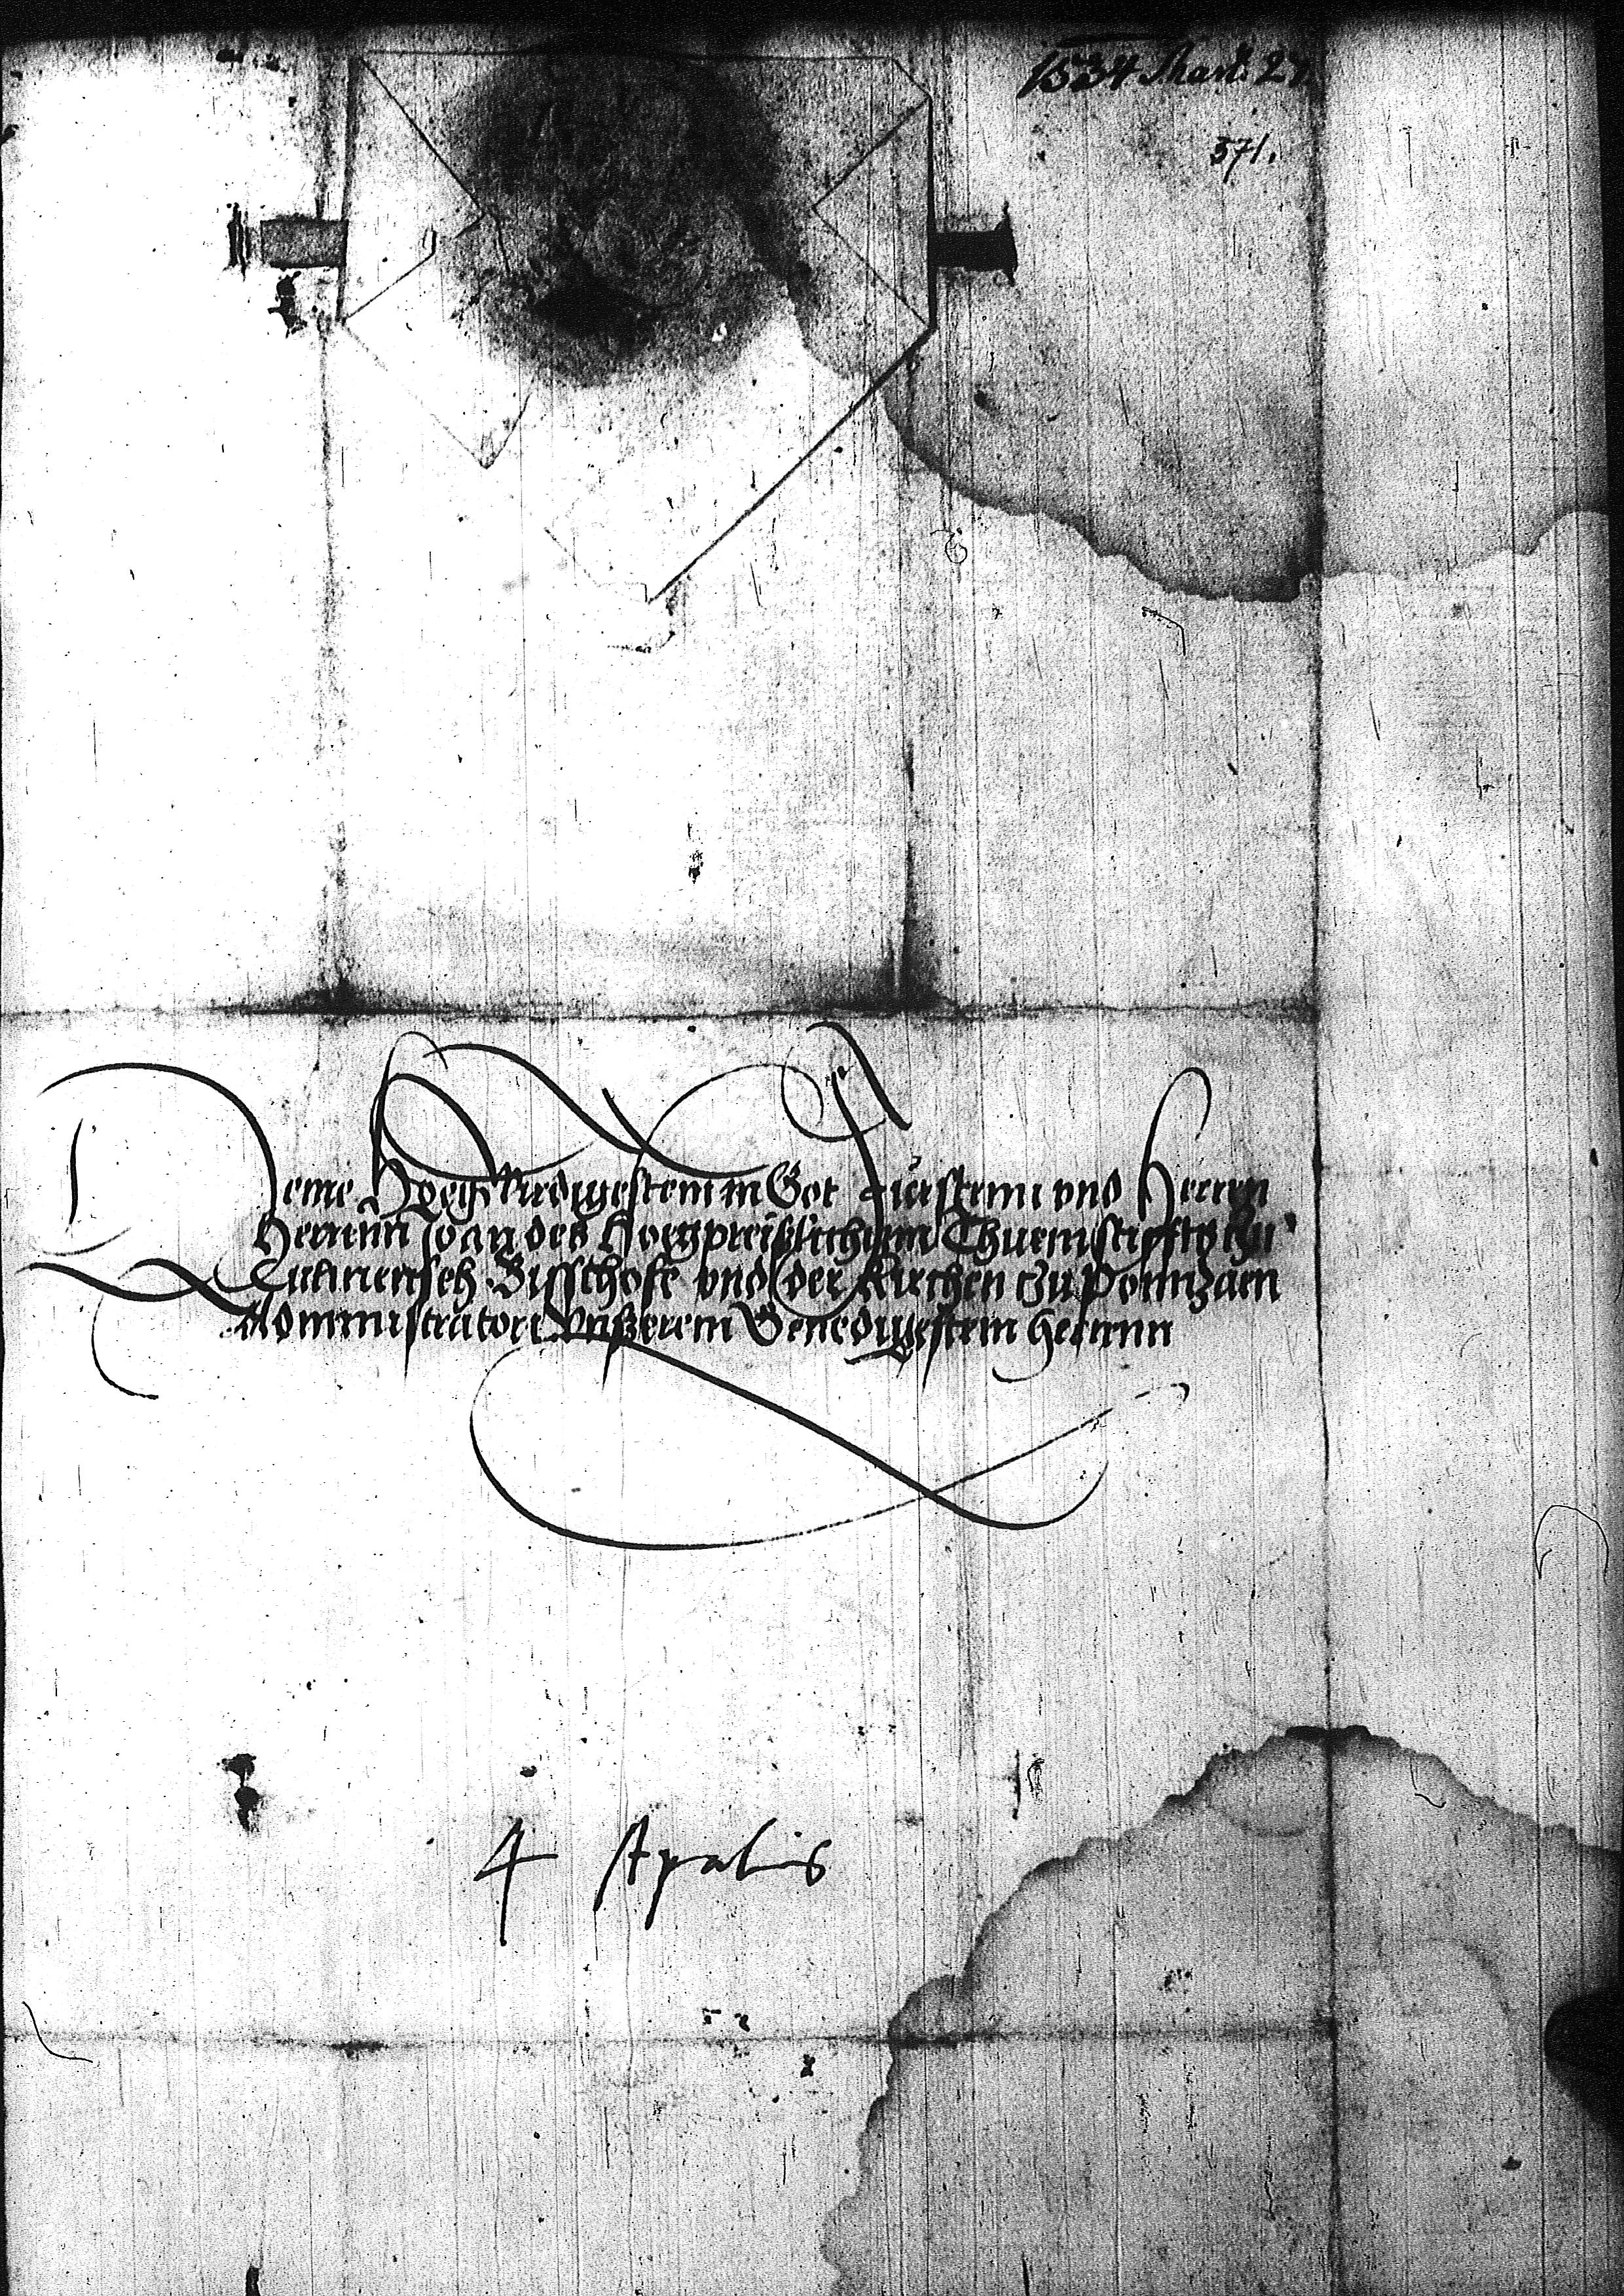 1534 Mart. 27
371.
Deme Hochwirdigestem in Got Fürstenn vnd Herren
Herrnn Joan des Hochpreißlichenn Thuemstiffts tzu
Culmensehe Bisschofe vnd der Kirchen tzu Pomezaen
Administratori vnßerem Genedigestem Herrnn
4 Aprilis